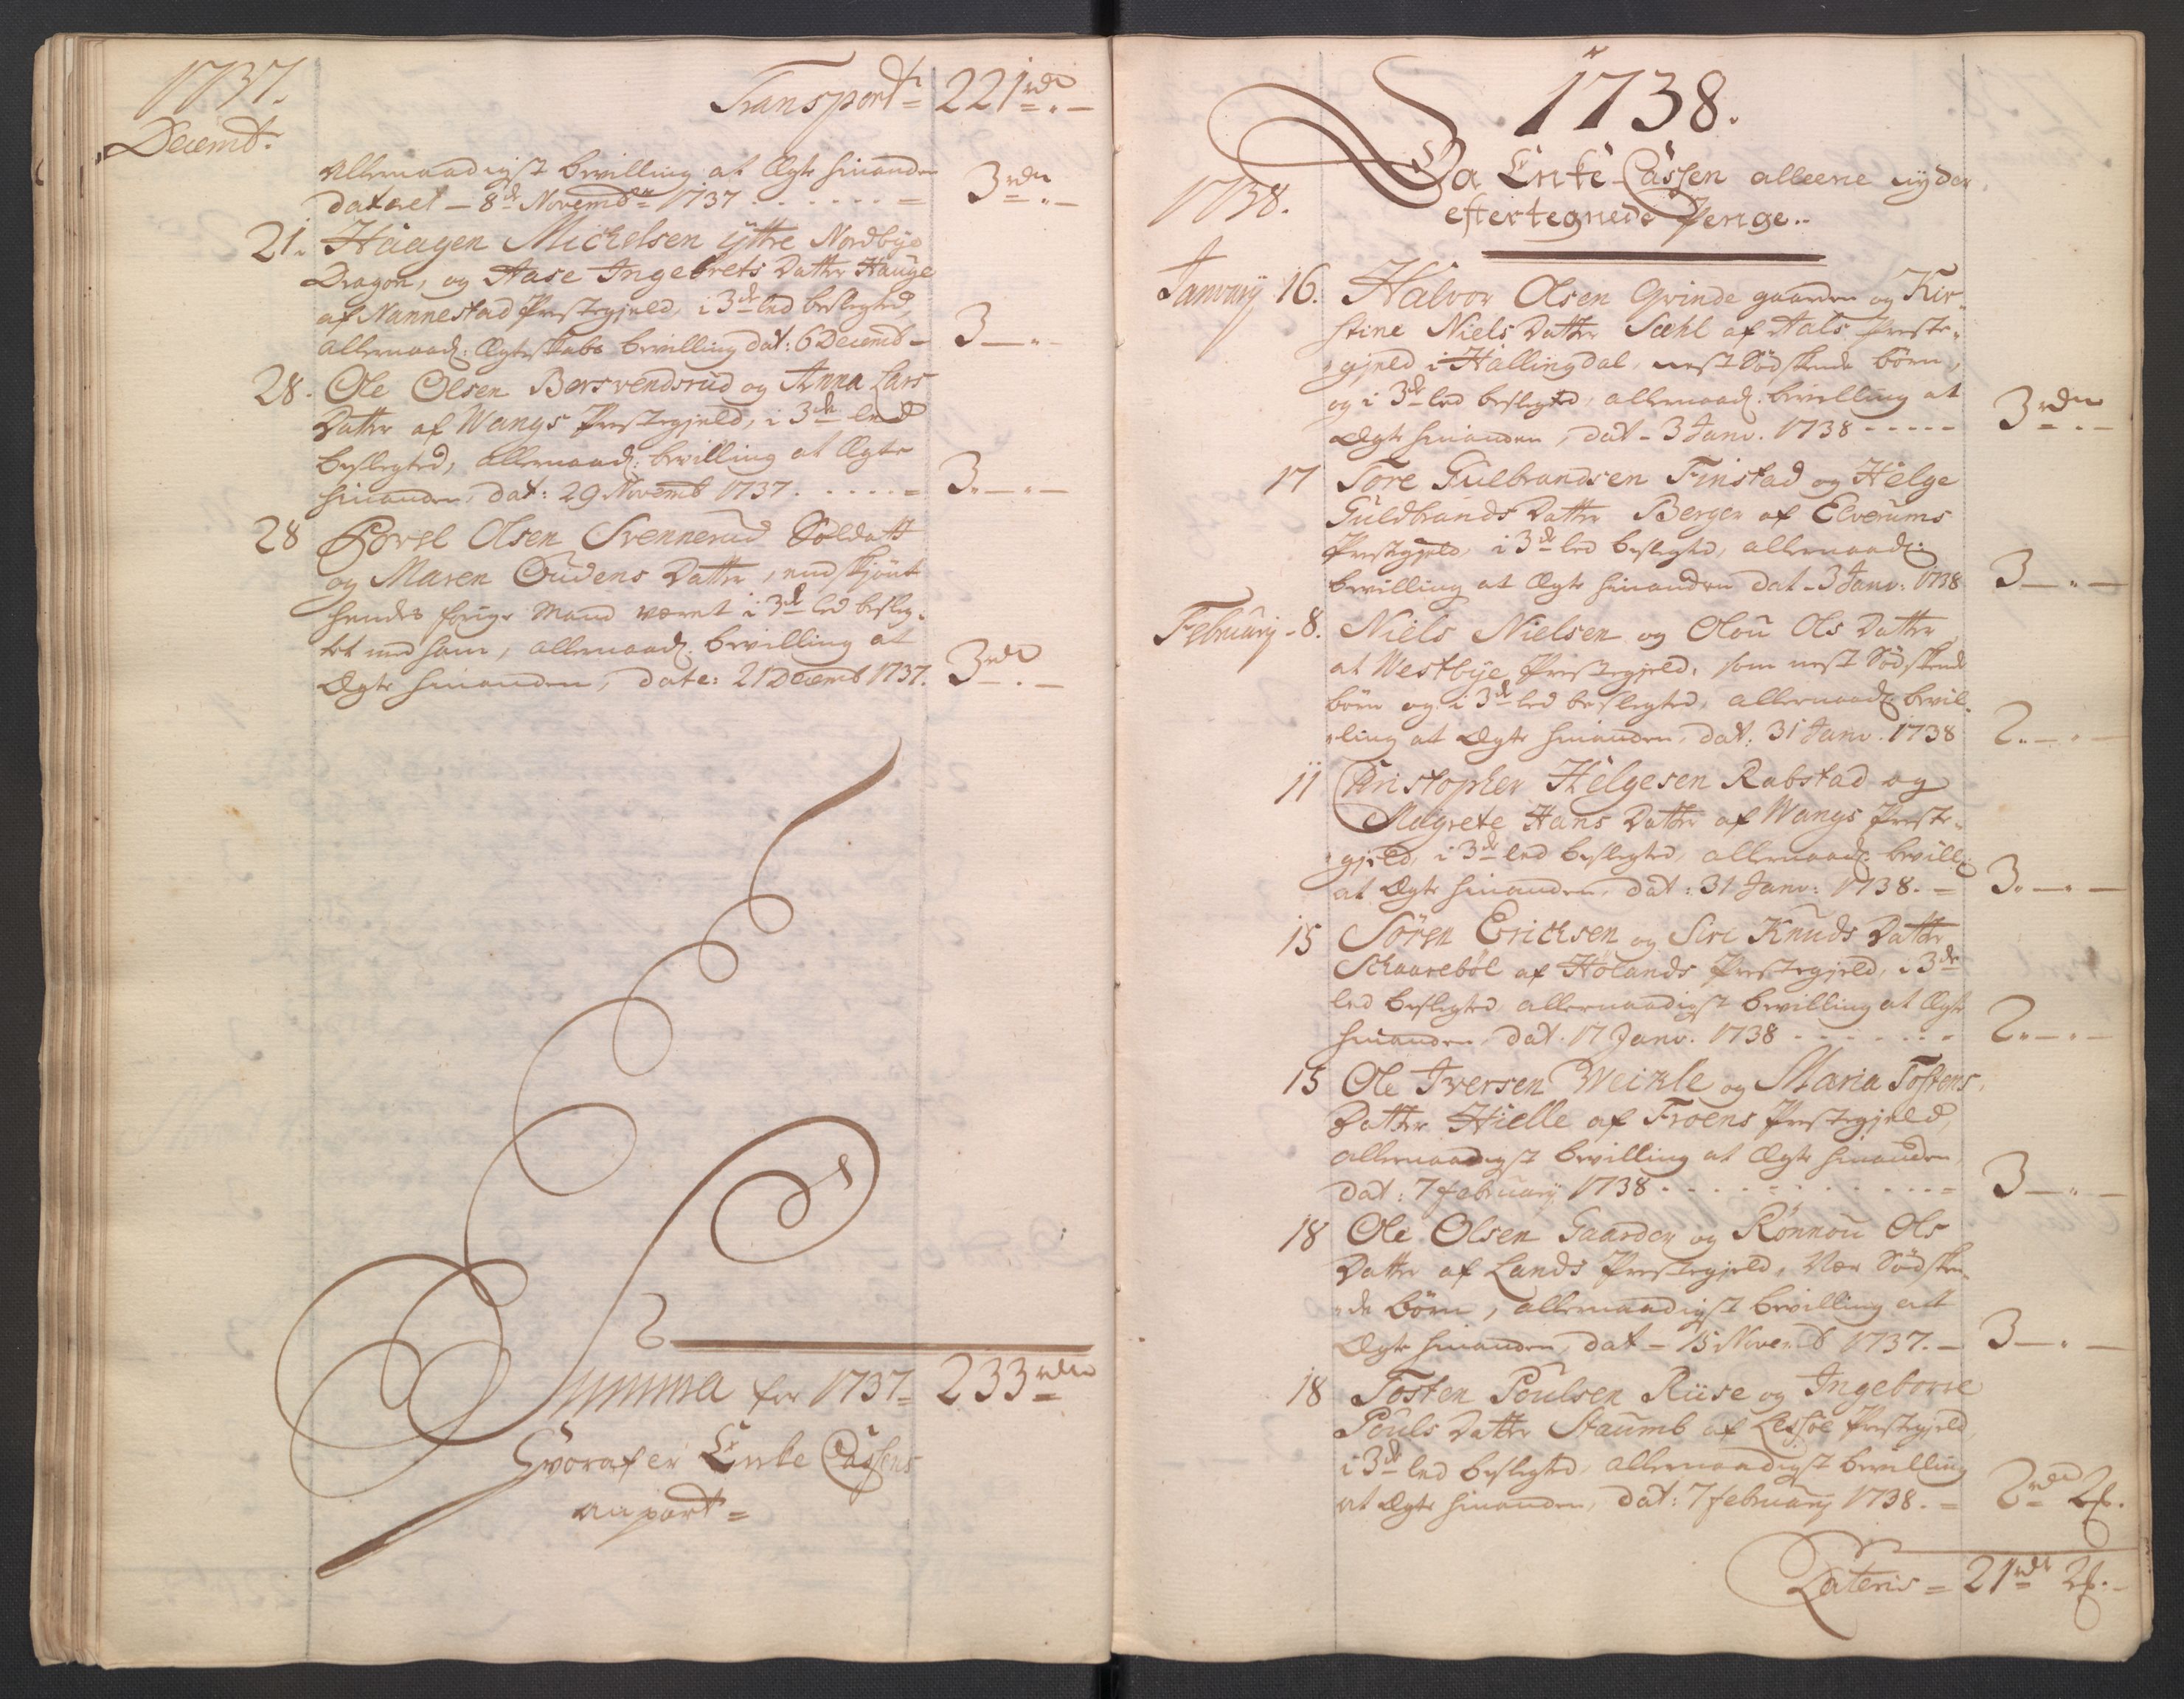 1737.
Decemb:
Transport = 221 rd –
Allernaadigst bevilling at Ægte hinanden
dateret – 8de Novembr 1737 = 3 rdr –
21. Haagen Michelsen ÿttre Nordbÿe
Dragon, og Aase Ingebrets Datter Hauge
af Nannestad Prestegield, i 3de led beslegted,
allernaad: Ægteskabs bevilling dat: 6 Decemb – 3 –
28. Ole Olsen Borsvendsrud og Anna Lars
Datter af Wangs Prestegield, i 3de led
beslegted, allernaad: bevilling at Ægte
hinanden, dat: 29 Novemb 1737 = 3. –
28 Povel Olsen Svennerud Soldatt
og Maren Gudens Datter, endskjönt
hendes forige Mand veret i 3de led besleg-
tet med ham, allernaad: bevilling at
Ægte hinanden, date: 21 Decemb 1737. 3 rd –
Summa for 1737 = 233 rdr
Hvoraf er Enke Cassens
anpart =
1738.
Da Enke-Cassen alleene nyder
eftertegnede Penge.
1738.
Januarÿ 16. Halvor Olsen Grinde gaarden og Kir-
stine Niels Datter Sæhl af Aals Preste-
gjeld i Hallingdal, nest Södskende börn,
og i 3de led beslegted, allernaad: bevilling at
Ægte hinanden, dat – 3 Janv. 1738 – 3 rdr –
17 Tore Gulbrandsen Finstad og Helge
Guldbrands Datter Berger af Elverums
Prestegield, i 3de led beslegted, allernaad:
bevilling at Ægte hinanden dat – 3 Janv: 1738 3 –
Februarÿ – 8. Niels Nielsen og Olou Ols Datter
at Westbÿe Prestegjeld, som nest Södskende
börn og i 3de led beslegted, allernaad: bevil-
ling at Ægte hinanden, dat. 31 Janv. 1738 2. –
11 Christopher Helgesen Rabstad og
Magrete Hans Datter af Wangs Preste-
gjeld, i 3de led beslegted, allernaad: bevill:
at Ægte hinanden, dat: 31 Janv: 1738. – 3. –
15 Sören Ericksen og Siri Knuds Datter
Schaareböl af Hölands Prestegjeld, i 3de
led beslegted, allernaadigst bevilling at Ægte
hinanden, dat. 17 Janv. 1738 – 2. –
15 Ole Iversen Weikle og Maria Tostens
Datter Hielle af Froens Prestegjeld,
allernaadigst bevilling at Ægte hinanden,
dat: 7 februarÿ 1738 = 3 –
18 Ole Olsen Gaarder og Rönnou Ols
Datter af Lands Prestegjeld, Nær Södsken-
de börn, allernaadigst bevilling at
Ægte hinanden, dat – 15 Novemb 1737. – 3 –
18 Tosten Poulsen Riise og Ingeborre
Pouls Datter Staumb af Lessöe Prestegjeld,
i 3de led beslegted, allernaadigst bevilling
at Ægte hinanden, dat: 7 februarÿ 1738. = 2 rd 2 ß.
Lateris = 21 rdr 2 ß. –